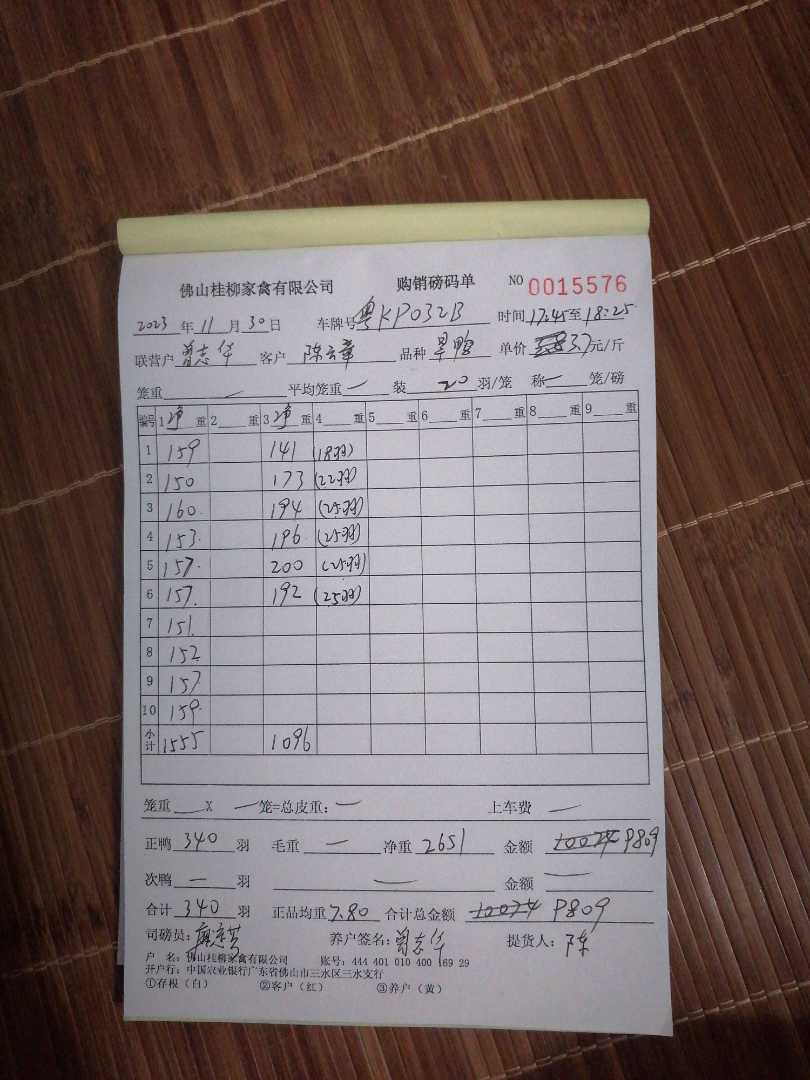 佛山桂柳家禽有限公司 购销磅码单 NO 0015576
2023 年 11 月 30 日 车牌号 粤KP032B 时间 17:45 至 18:25
联营户 曾志华 客户 陈云章 品种 旱鸭 单价 3.7 元/斤
笼重 — 平均笼重 — 装 20 羽/笼 称 — 笼/磅
编号 1 净 重 2 重 3 净 重 4 重 5 重 6 重 7 重 8 重 9 重
1 159 141 (18羽)
2 150 173 (22羽)
3 160 194 (25羽)
4 153 196 (25羽)
5 157 200 (25羽)
6 157 192 (25羽)
7 151
8 152
9 157
10 159
小计 1555 1096
笼重 X — 笼=总皮重: — 上车费 —
正鸭 340 羽 毛重 — 净重 2651 金额 10074 9809
次鸭 — 羽 — 金额 —
合计 340 羽 正品均重 7.80 合计总金额 10074 9809
司磅员: 养户签名: 曾志华 提货人: 陈
户 名: 佛山桂柳家禽有限公司 账号: 444 401 010 400 169 29
开户行: 中国农业银行广东省佛山市三水区三水支行
①存根(白) ②客户(红) ③养户(黄)